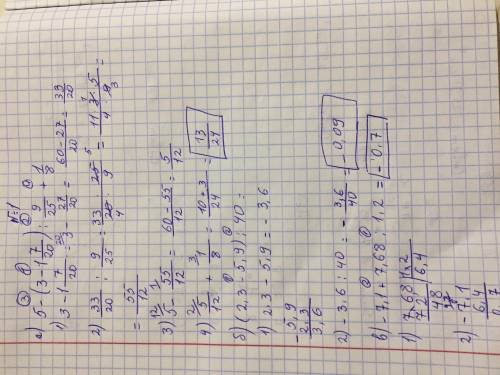 №1
③ ① ② ④
а) 5 - (3 - 1 7/20) : 9/25 + 1/8
1) 3 - 1 7/20 = 3 - 27/20 = (60 - 27)/20 = 33/20
2) 33/20 : 9/25 = 33/20 · 25/9 = (11 · 5)/(4 · 3) =
= 55/12
3) 5 - 55/12 = (60 - 55)/12 = 5/12
4) 5/12 + 1/8 = (10 + 3)/24 = 13/24
① ②
б) (2,3 - 5,9) : 40 =
1) 2,3 - 5,9 = -3,6
- 5,9
2,3
3,6
2) -3,6 : 40 = - 3,6/40 = -0,09
② ①
в) -7,1 + 7,68 : 1,2 = -0,7
1) 7,68 | 1,2
7 2 | 6,4
48
2) - 7,1
6,4
0,7